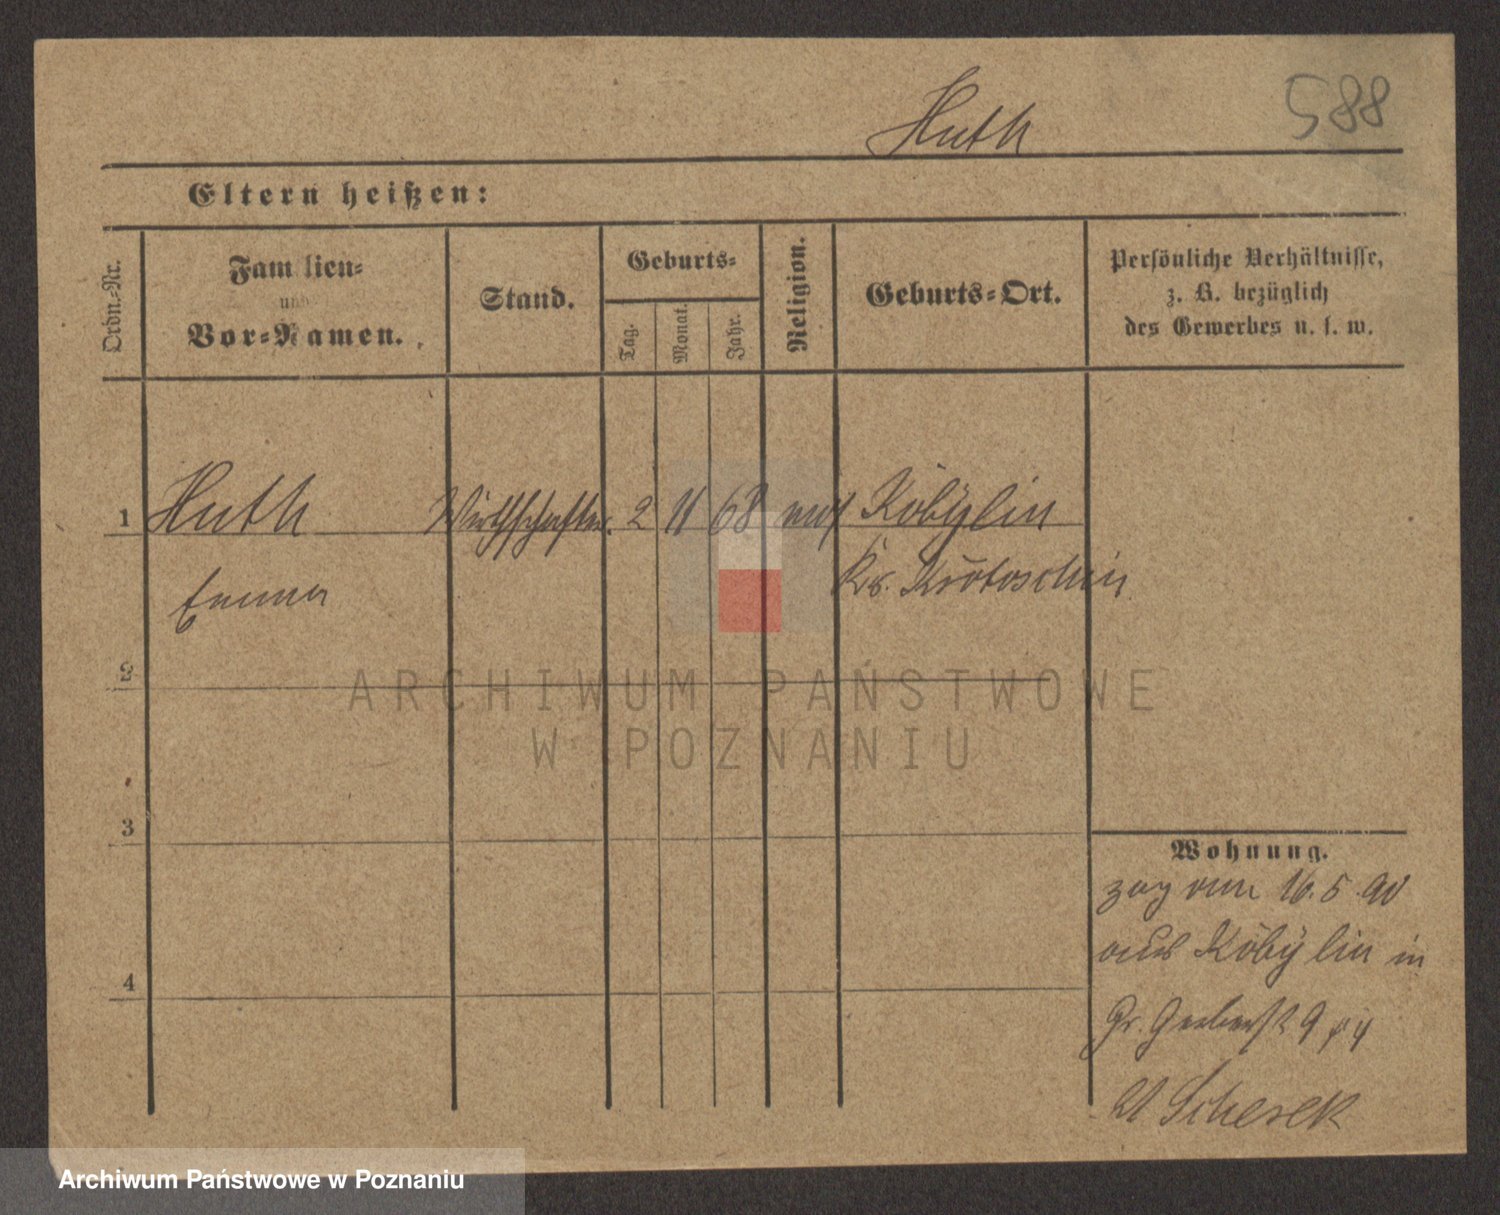 Huth
588
Eltern heißen:
Ordn.-Nr.
Familien-
und
Vor-Namen.
Stand.
Geburts-
Tag.
Monat.
Jahr.
Religion.
Geburts-Ort.
Persönliche Verhältnisse,
z. B. bezüglich
des Gewerbes u. s. w.
1 Huth Wirthschafter. 2 11 68 Kobylin
Emma Kr. Krotoschin
2
3
4
Wohnung.
zog am 16.5.90
aus Kobylin in
Gr. Gerberst 9
Scherek
ARCHIWUM PAŃSTWOWE
W POZNANIU
Archiwum Państwowe w Poznaniu